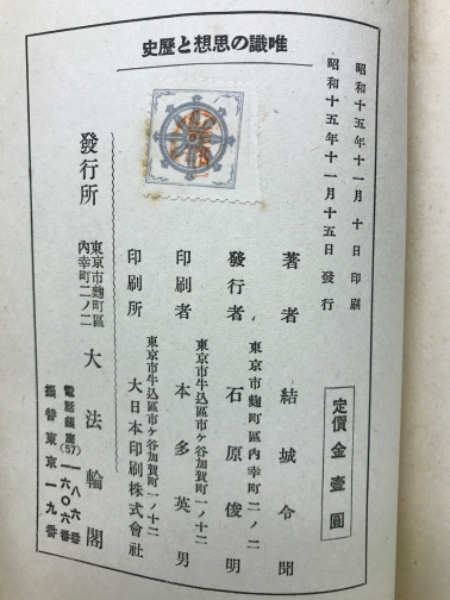 唯識の思想と歴史
昭和十五年十一月十日印刷
昭和十五年十一月十五日發行
定價金壹圓
著者 結城令聞
東京市麴町區內幸町二ノ二
發行者 石原俊明
東京市牛込區市ヶ谷加賀町一ノ十二
印刷者 本多英男
東京市牛込區市ヶ谷加賀町一ノ十二
印刷所 大日本印刷株式會社
發行所 東京市麴町區
內幸町二ノ二 大法輪閣
電話銀座(57)一八六番
一六〇六番
振替東京一九番